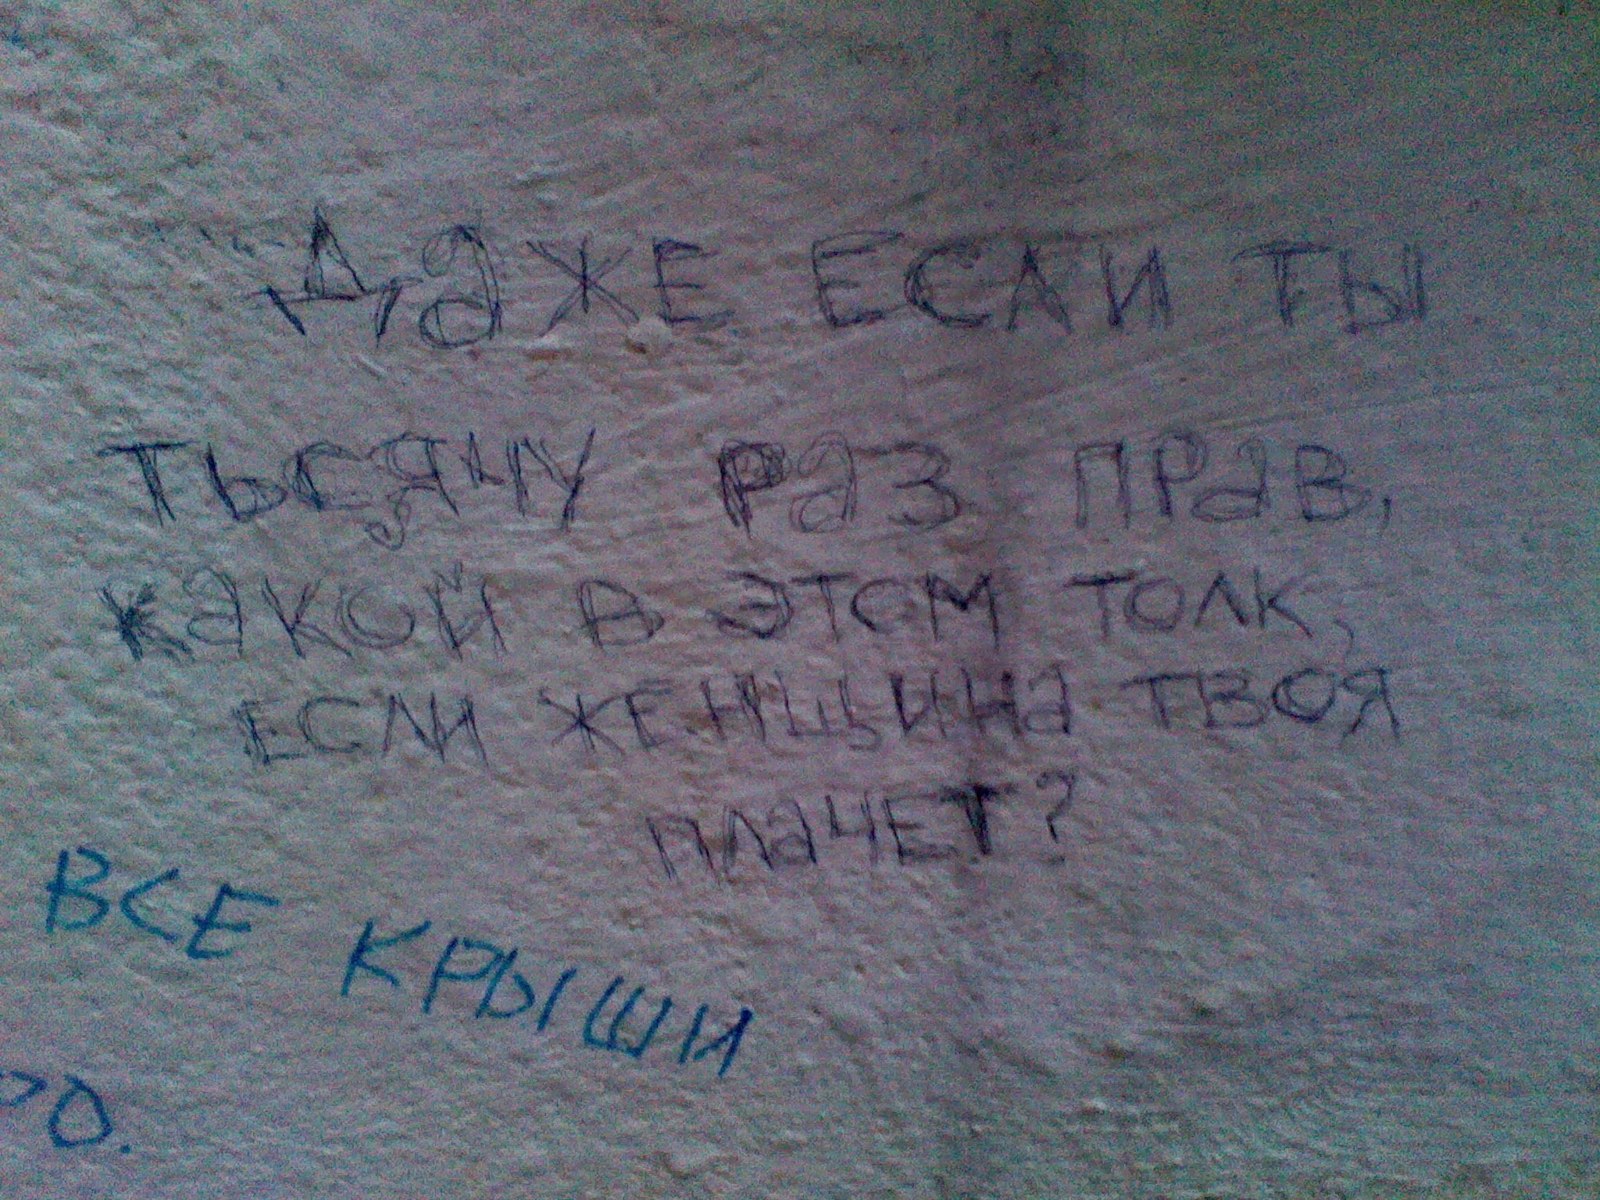 Даже если ты
тысячу раз прав,
какой в этом толк,
если женщина твоя
плачет?
ВСЕ КРЫШИ